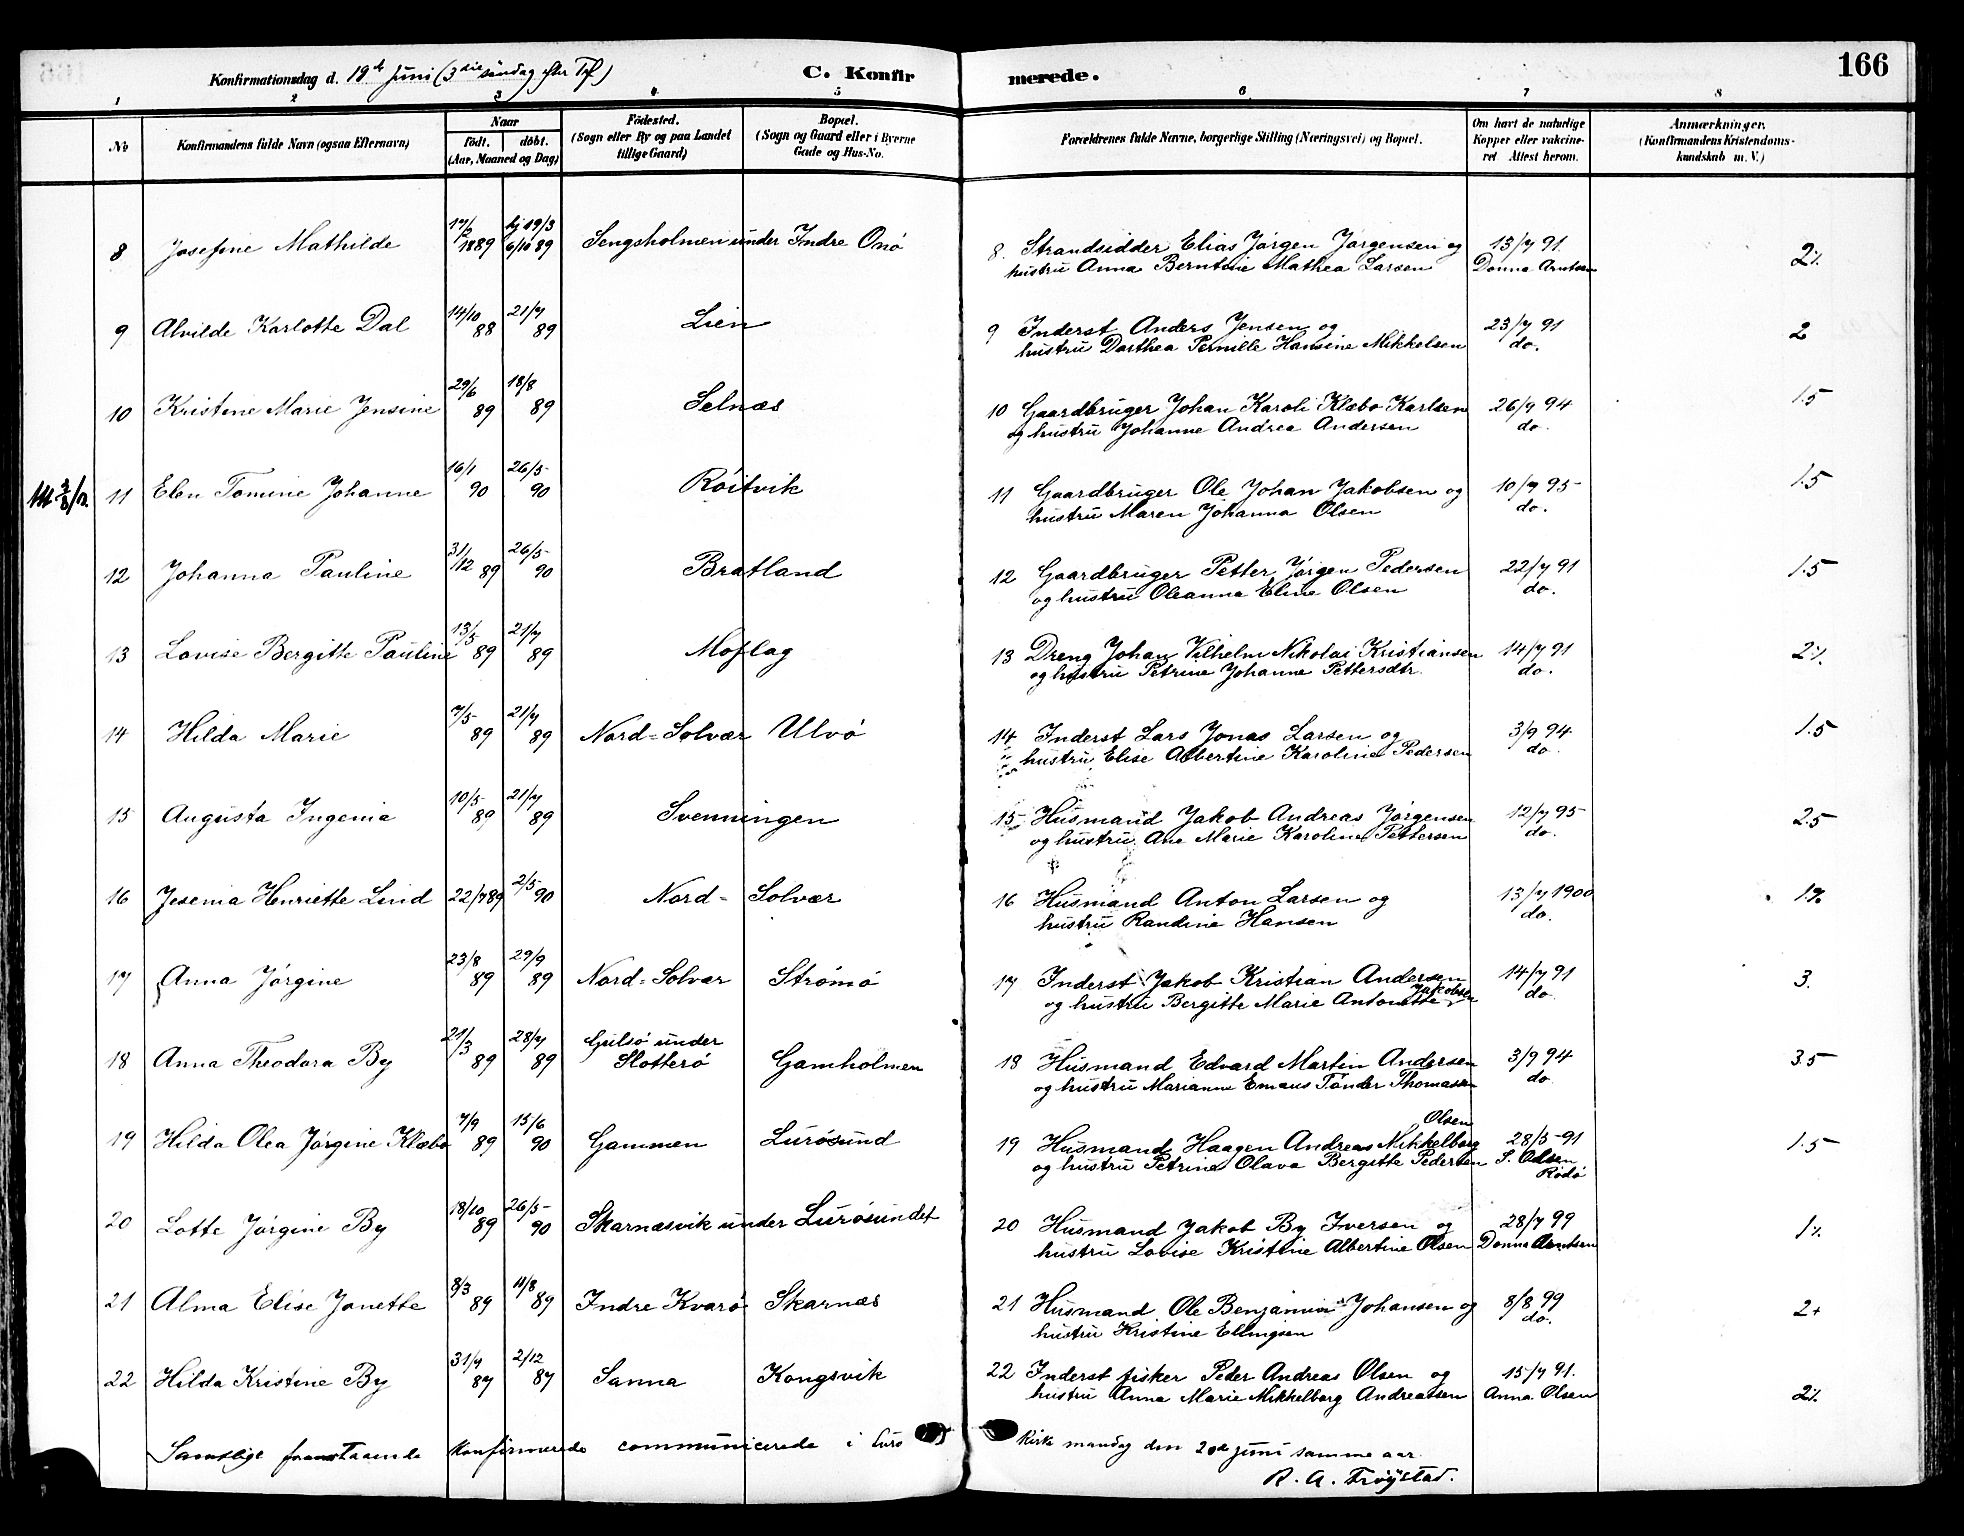 Konfirmationsdag d. 19de Juni (3die søndag efter Tref)
C. Konfirmerede.
166
1 2 3 4 5 6 7 8
No
Konfirmandens fulde Navn (ogsaa Efternavn)
Naar
födt. döbt.
(Aar, Maaned og Dag)
Födested.
(Sogn eller By og paa Landet
tillige Gaard)
Bopæl.
(Sogn og Gaard eller i Byerne
Gade og Hus-No.
Forældrenes fulde Navne, borgerlige Stilling (Næringsvei) og Bopæl.
Om havt de naturlige
Kopper eller vakcine-
ret Attest herom.
Anmærkninger.
(Konfirmandens Kristendoms-
kundskab m. V.)
8 Josefine Mathilde 1889 hj 19/3 6/10 89 Sengsholmen under Indre Onö 8. Strandsidder Elias Jørgen Jørgensen og 13/7 91. 2%
hustru Anna Berntine Mathea Larsen Donna Arntsen
9 Alvilde Karlotte Dal 14/10 88 21/7 89 Lien 9 Inderst Anders Jensen og 23/7 91 2
hustru Dorthea Pernille Hansine Mikkelsen do.
10 Kristine Marie Jensine 29/6 89 18/8 89 Selnæs 10 Gaardbruger Johan Karoli Klæbo Karlsen 26/9 94 1.5
og hustru Johanne Andrea Andersen do.
11 Elen Tomine Johanne 16/1 90 26/5 90 Röitvik 11 Gaardbruger Ole Johan Jakobsen og 10/7 95 1.5
hustru Maren Johanna Olsen do.
12 Johanna Pauline 31/12 89 26/5 90 Bratland 12 Gaardbruger Petter Jörgen Pedersen 22/7 91 1.5
og hustru Oleanna Eline Olsen do.
13 Lovise Bergitte Pauline 13/5 89 21/7 89 Moflag 13 Dreng Johan Vilhelm Nikolai Kristiansen 14/7 91 2%
og hustru Petrine Johanne Pettersdtr. do.
14 Hilda Marie 7/5 89 21/7 89 Nord-Solvær Ulvö 14 Inderst Lars Jonas Larsen og 3/9 94 1.5
hustru Elise Albertine Karoline Pedersen do.
15 Augusta Ingenia 10/5 89 21/7 89 Svenningen 15 Husmand Jakob Andreas Jörgensen 12/7 95 2.5
og hustru Ane Marie Karoline Pettersen do.
16 Jesenia Henriette Lind 22/7 89 2/5 90 Nord-Solvær 16 Husmand Anton Larsen og 13/7 1900 1%
hustru Randine Hansen do.
17 Anna Jörgine 23/8 89 29/9 89 Nord-Solvær Strömö 17 Inderst Jakob Kristian Andersen 14/7 91 3.
og hustru Bergitte Marie Antonette Jakobsen do
18 Anna Theodora By 21/3 89 28/7 89 Gulsö under Slotterö Gamholmen 18 Husmand Edvard Martin Andersen 3/9 94 3.5
og hustru Marianne Emaus Tönder Thomasen do.
19 Hilda Olea Jørgine Klæbo 7/9 89 15/6 90 Gammen Lurösund 19 Husmand Haagen Andreas Mikkelborg Olsen 28/5-91 1.5
og hustru Petrine Olava Bergitte Pedersen S. Olsen Rödö
20 Lotte Jörgine By 18/10 89 26/5 90 Skarnæsvik under Lurösundet 20 Husmand Jakob By Iversen og 28/7 99 1%
hustru Lovise Kristine Albertine Olsen Donna Arntsen
21 Alma Elise Janette 8/3 89 11/8 89 Indre Kvarö Skarnæs 21 Husmand Ole Benjamin Johansen og 8/8 99 2+
hustru Kristine Ellingsen do.
22 Hilda Kristine By 31/7 87 2/12 87 Sanna Kongsvik 22 Inderst fisker Peder Andreas Olsen og 15/7 91. 2%
hustru Anna Marie Mikkelborg Andreasen Anna Olsen
Samtlige franstaaende konfirmerede communicerede i Lurö kirke mandag den 20de juni samme aar.
R. A. Fröystad.